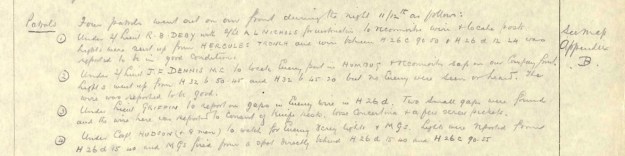 Patrols Four patrols went out on our front during the night 11/12th as follows:
① Under 2/Lieut R.B. DEBY with 2/Lt A.L. NICHOLLS to reconnoitre wire & locate posts.
Lights were sent up from HERCULES TRENCH and wire between H26c 90.50 & H26d 12.20 was
reported to be in good condition.
② Under 2/Lieut J.E. DENNIS M.C. to locate Enemy post in & reconnoitre sap on our Company front.
Lights sent up from H32 b 50.45 and H32 b 45.30 but no Enemy were seen or heard. The
wire was reported to be good.
③ Under Lieut to report on gaps in Enemy wire in H26d. Two small gaps were found
and the wire here was reported to consist of Knife rests, loose Concertina wire on screw pickets.
④ Under Capt HUDSON (& 2 men) to watch for Enemy Very lights & M.Gs. Lights were reported from
H26d 15.40 and M.Gs firing from a spot directly behind H26d 15.40 and H26c 90.55
See map
Appendix
B.